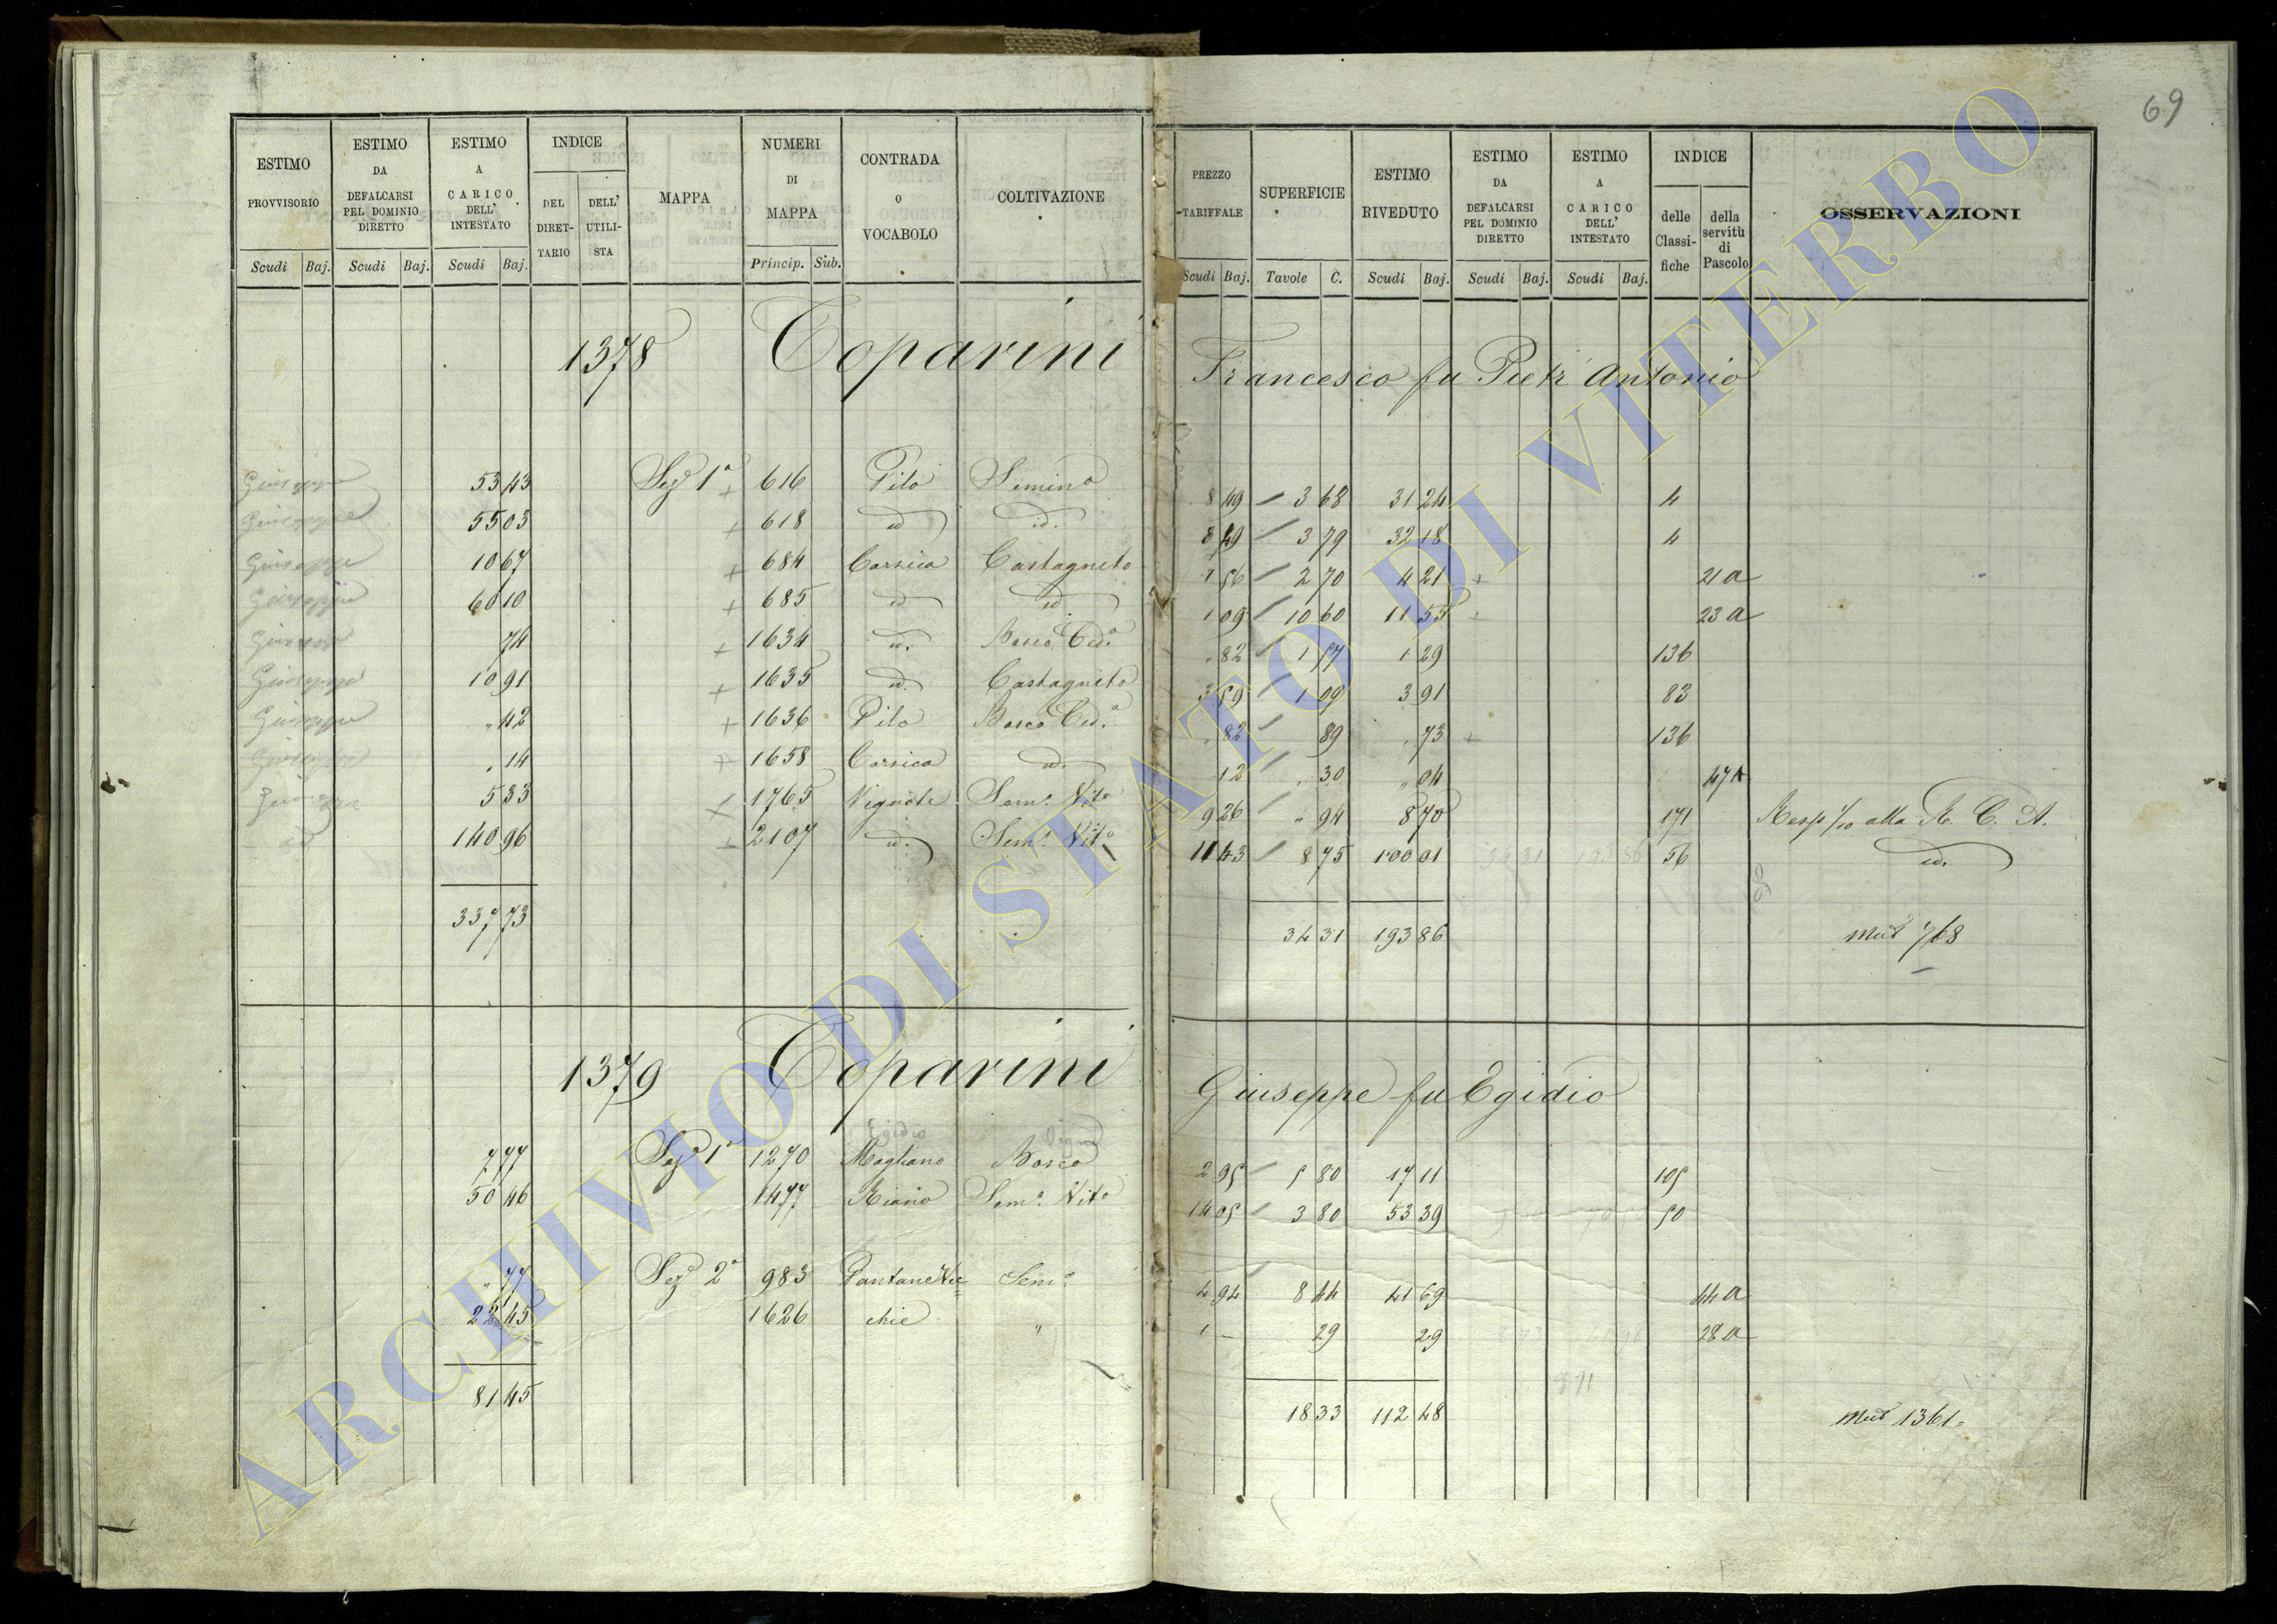 69
ESTIMO PROVVISORIO Scudi Baj.
ESTIMO DA DEFALCARSI PEL DOMINIO DIRETTO Scudi Baj.
ESTIMO A CARICO DELL' INTESTATO Scudi Baj.
INDICE DEL DIRET-TARIO DELL' UTILI-STA
MAPPA
NUMERI DI MAPPA Princip. Sub.
CONTRADA o VOCABOLO
COLTIVAZIONE
PREZZO TARIFFALE Scudi Baj.
SUPERFICIE Tavole C.
ESTIMO RIVEDUTO Scudi Baj.
ESTIMO DA DEFALCARSI PEL DOMINIO DIRETTO Scudi Baj.
ESTIMO A CARICO DELL' INTESTATO Scudi Baj.
INDICE delle Classi-fiche della servitù di Pascolo
OSSERVAZIONI
1378 Toparini Francesco fu Piet. Antonio
Giuseppe 53 43 Sez. 1ª + 616 Pilo Semin.o 8 49 3 68 31 24 4
Giuseppe 55 03 + 618 id id. 8 49 3 79 32 18 4
Giuseppe 10 67 + 684 Corsica Castagneto 1 56 2 70 4 21 + 21 a
Giuseppe 60 10 + 685 id id 1 09 10 60 11 55 + 23 a
Giuseppe 74 + 1634 id. Bosco Ced.o " 82 1 57 1 29 136
Giuseppe 10 91 + 1635 id. Castagneto 3 59 1 09 3 91 83
Giuseppe " 42 + 1636 Pilo Bosco Ced.o " 82 89 " 73 + 136
Giuseppe " 14 + 1658 Corsica id. 12 " 30 " 04 47 a
Giuseppe 5 33 + 1765 Vignole Sem.o Vit.o 9 26 " 94 8 70 171 Resp 1/10 alla R. C. A.
id 140 96 + 2107 id. Sem.o Vit.o 11 43 8 75 100 01 34 31 193 86 56 id.
337 73 34 31 193 86 Mut 768
1379 Toparini Giuseppe fu Egidio
Egidio Vigna
7 77 Sez. 1ª 1270 Magliano Bosco 2 95 5 80 17 11 105
50 46 1477 Riano Sem.o Vit.o 14 05 3 80 53 39 50
" 77 Sez. 2ª 983 Pantanelle Sem.o 4 94 8 44 41 69 44 a
22 45 1626 chie " 1 – 29 29 28 a
81 45 18 33 112 48 Mut 1361=
ARCHIVIO DI STATO DI VITERBO